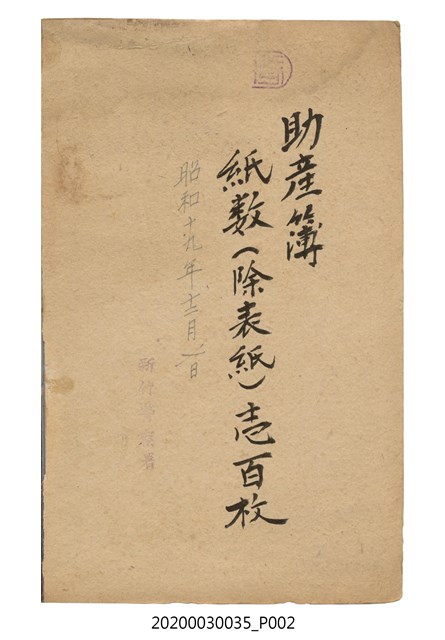 助産簿
紙数(除表紙)壱百枚
昭和十九年十二月一日
新竹
20200030035_P002